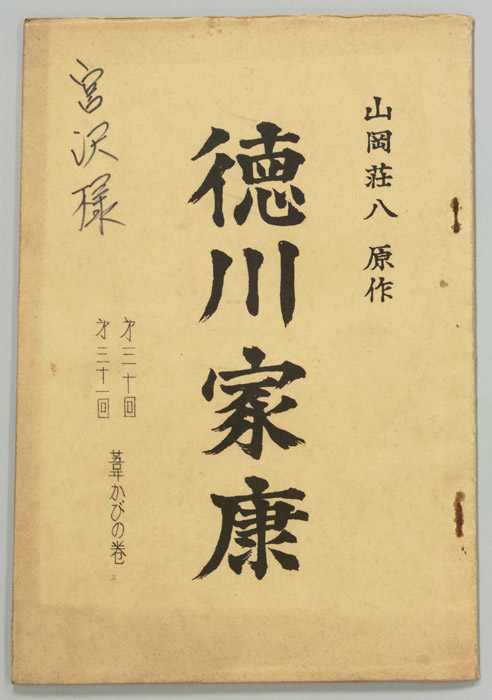 山岡荘八 原作
徳川家康
才三十回
才三十一回
葦かびの巻
宮沢様